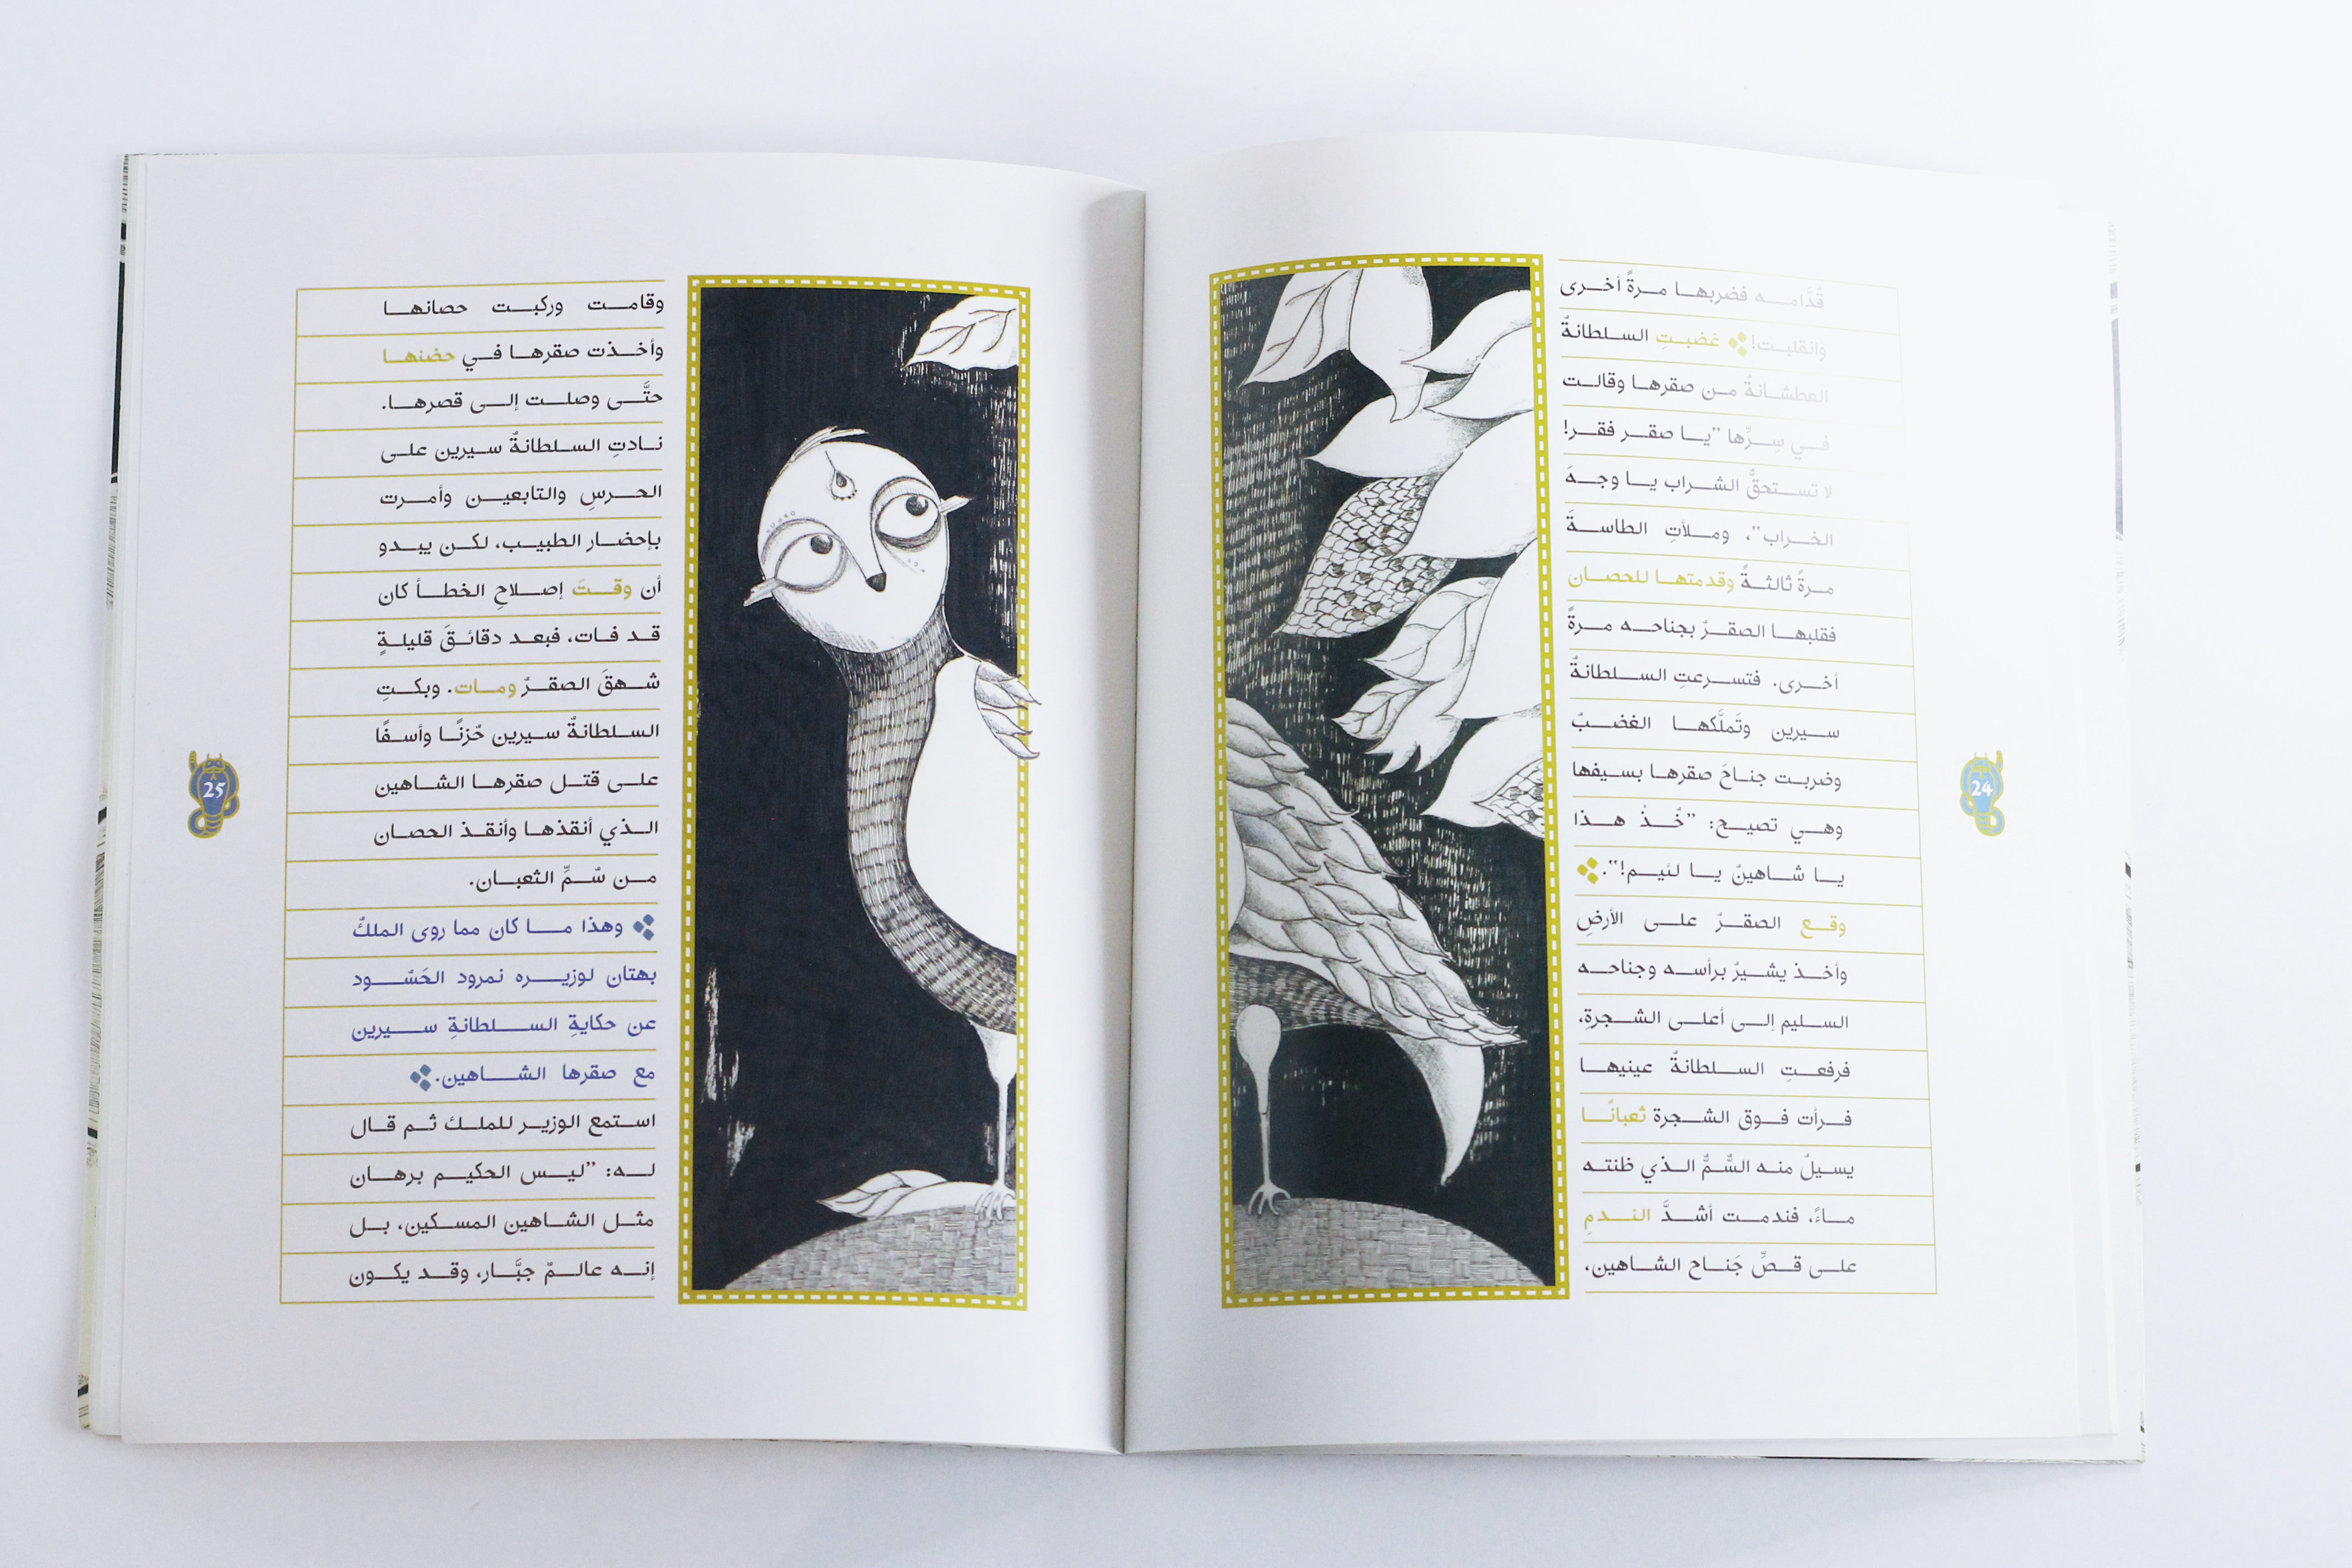 قُدَّامـه فضربهـا مـرةً أخـرى
وانقلبـت! غضبـتِ السـلطانةُ
العطشـانةُ مـن صقرهـا وقالـت
فـي سِـرِّها ”يـا صقـر فقـر!
لا تسـتحقُّ الشـراب يـا وجـهَ
الخـراب“، ومـلأتِ الطاسـةَ
مـرةً ثالثـةً وقدمتهـا للحصـان
فقلبهـا الصقـرُ بجناحـه مـرةً
أخـرى. فتسـرعتِ السـلطانةُ
سـيرين وتَملَّكهـا الغضـبُ
وضربـت جنـاحَ صقرهـا بسـيفها
وهـي تصيـح: ”خُـذْ هـذا
يـا شـاهينُ يـا لئيـم!“.
وقـع الصقـرُ علـى الأرضِ
وأخـذ يشـيرُ برأسـه وجناحـه
السـليم إلـى أعلـى الشـجرةِ،
فرفعـتِ السـلطانةُ عينيهـا
فـرأت فـوق الشـجرة ثعبانًـا
يسـيلُ منـه السُّـمُّ الـذي ظنتـه
مـاءً، فندمـت أشـدَّ النـدمِ
علـى قـصِّ جَنـاح الشـاهين،
24
وقامـت وركبـت حصانهـا
وأخـذت صقرهـا فـي حضنهـا
حتَّـى وصلـت إلـى قصرهـا.
نـادتِ السـلطانةُ سـيرين علـى
الحـرسِ والتابعيـن وأمـرت
بإحضـار الطبيـب، لكـن يبـدو
أن وقـتَ إصـلاحِ الخطـأ كان
قـد فـات، فبعـد دقائـقَ قليلـةٍ
شـهقَ الصقـرُ ومـات. وبكـتِ
السـلطانةُ سـيرين حُزنًـا وأسـفًا
علـى قتـل صقرهـا الشـاهين
الـذي أنقذهـا وأنقـذ الحصـان
مـن سُـمِّ الثعبـان.
وهذا مـا كان مما روى الملكُ
بهتان لوزيـره نمرود الحَسُـود
عن حكايةِ السـلطانةِ سـيرين
مع صقرها الشـاهين.
اسـتمع الوزيـر للملـك ثـم قـال
لـه: ”ليـس الحكيـم برهـان
مثـل الشـاهين المسـكين، بـل
إنـه عالـمٌ جبَّـار، وقـد يكـون
25